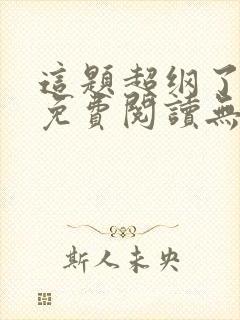 這題超纲了
免費閱讀無
斯人未央